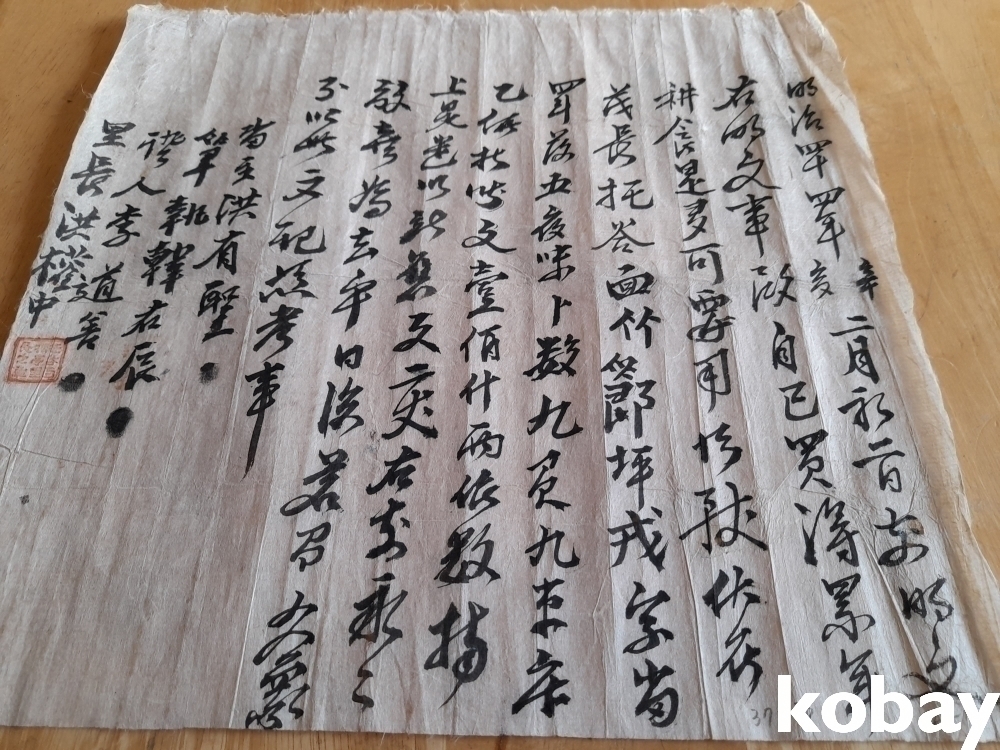 明治四四年辛亥二月初一日前明文
右明文事段自己買得累年
耕食是多可要用所致伏在
茂長托谷面竹節坪戎字畓
四斗落五夜味卜數九負九束庫
乙価折錢文壹佰什兩依數捧
上是遣以新舊文二丈右前永永
放賣爲去乎日後若有
則以此文記憑考事
畓主洪有聖
筆執韓右辰
證人李道善
里長洪 中
37
kobay